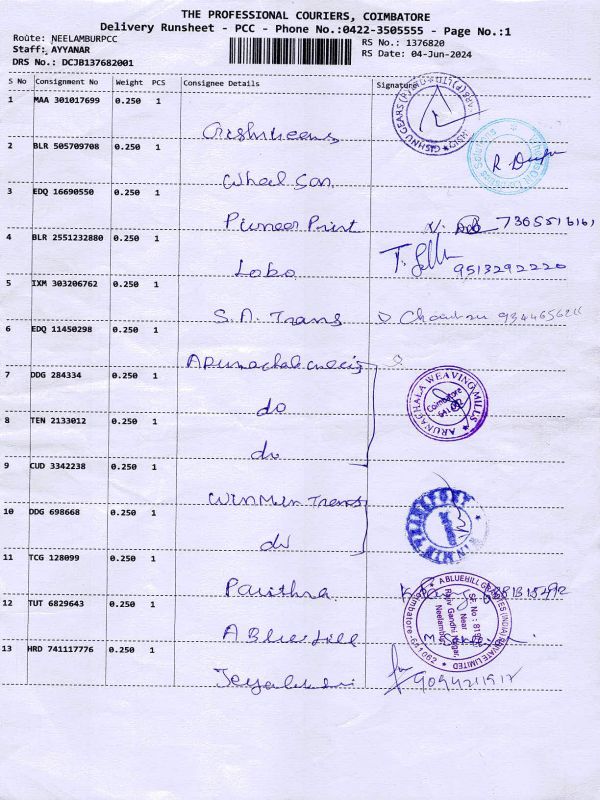 THE PROFESSIONAL COURIERS, COIMBATORE
Delivery Runsheet - PCC - Phone No.:0422-3505555 - Page No.:1
Route: NEELAMBURPCC
Staff: AYYANAR
DRS No.: DCJB137682001
RS No.: 1376820
RS Date: 04-Jun-2024
S No Consignment No Weight PCS Consignee Details Signature
1 MAA 301017699 0.250 1
GISHNU GEARS
2 BLR 505709708 0.250 1
Wheel Son
3 EDQ 16690550 0.250 1
Pioneer Print 7305516161
4 BLR 2551232880 0.250 1
Lobo 9513292220
5 IXM 303206762 0.250 1
S.A. Trans
6 EDQ 11450298 0.250 1
7 DDG 284334 0.250 1
do
ARUNACHALA WEAVING MILLS
Coimbatore
8 TEN 2133012 0.250 1
do
9 CUD 3342238 0.250 1
Winmen Trans
10 DDG 698668 0.250 1
do
11 TCG 128099 0.250 1
Pavithra
12 TUT 6829643 0.250 1
A Blue Hill
A BLUEHILL (INDIA) PRIVATE LIMITED
Near
Rajiv Gandhi Nagar,
Neelambur
Coimbatore 641 062
13 HRD 741117776 0.250 1